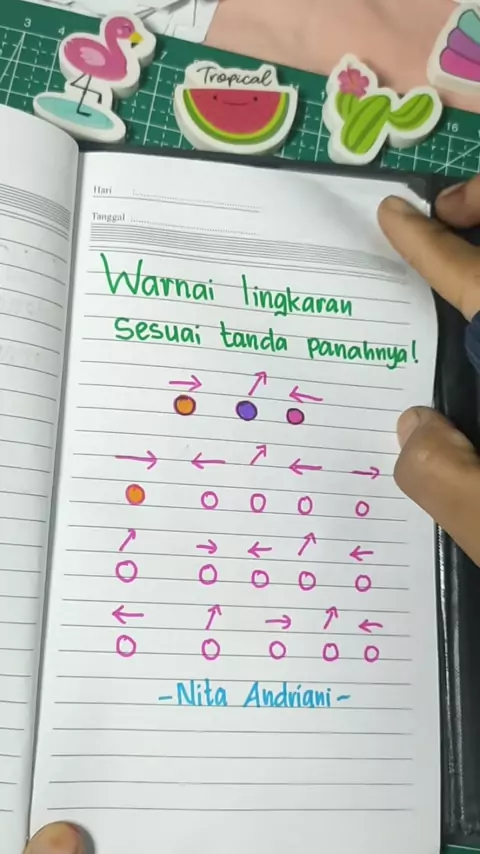 Tropical
Hari :
Tanggal :
Warnai lingkaran
sesuai tanda panahnya!
-Nita Andriani-
3 4
16